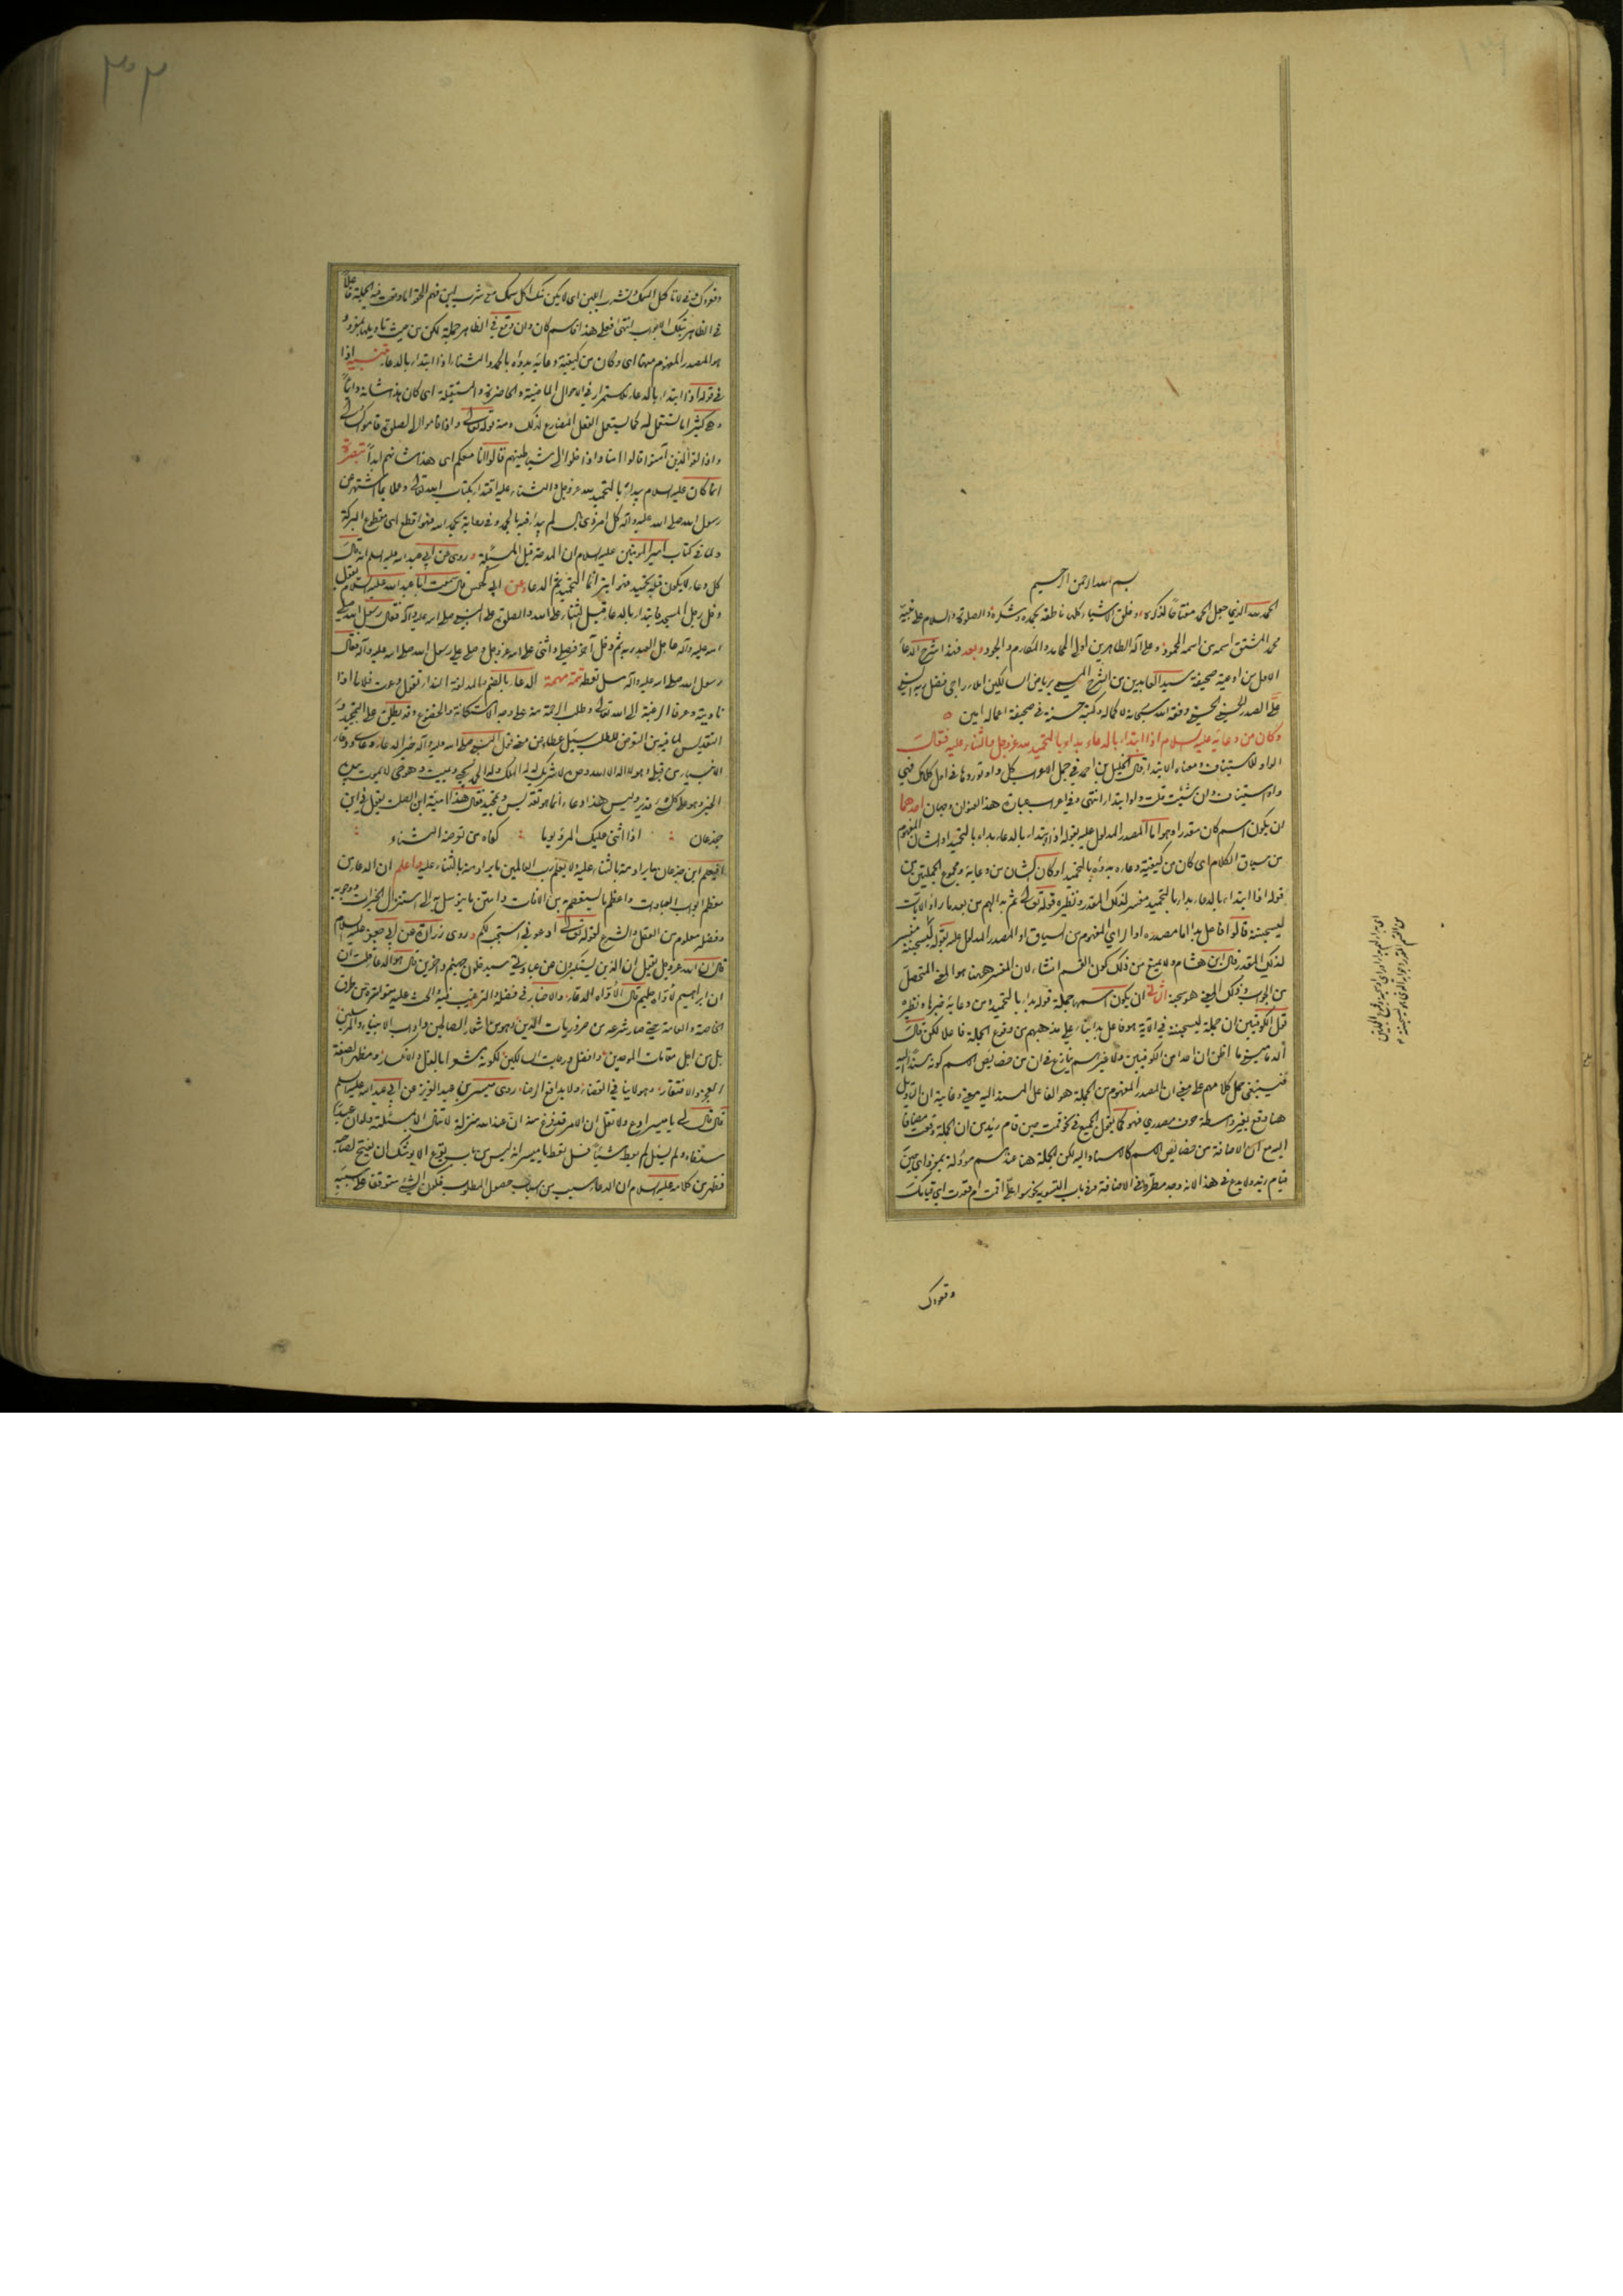 بسم الله الرحمن الرحيم
الحمد لله الذي جعل الحمد مفتاحا لذكره وخلق الاشياء كلها ناطقة بحمده وشكره والصلوة والسلام على نبيه
محمد المشتق اسمه من اسمه المحمود وعلى آله الطاهرين اولي المحامد والمكارم والجود وبعد فهذا شرح الدعاء
الاول من ادعية صحيفة سيد العابدين من الشرح المسمى برياض السالكين املاء راجي فضل ربه السني
علي الصدر الحسيني الحسني وفقه الله سبحانه لاكماله وكتبه حسنة في صحيفة اعماله امين
وكان من دعائه عليه السلام اذا ابتدا بالدعاء بدا بالتحميد لله عز وجل والثناء عليه فقال
الواو للاستيناف ومعناه الابتداء قال الخليل بن احمد في جمل الاعراب كل واو توردها في اول كلامك فهي
واو استيناف وان شئت قلت واو ابتداء انتهى وفي اعراب عبارة هذا العنوان وجهان احدهما
ان يكون اسم كان مقدرا وهو اما المصدر المدلول عليه بقوله اذا ابتدا بالدعاء بدا بالتحميد او الشان المفهوم
من سياق الكلام اي كان من كيفية دعائه بدؤه بالتحميد او كان الشان من دعائه ومجموع الجملتين من
قوله اذا ابتدا بالدعاء بدا بالتحميد مفسر لذلك المقدر ونظيره قوله تعالى ثم بدا لهم من بعد ما راوا الايات
ليسجننه قالوا فاعل بدا اما مصدره او الراي المفهوم من السياق او المصدر المدلول عليه بقوله ليسجننه مفسر
لذلك المقدر قال ابن هشام ولا يمنع من ذلك كون القسم انشاء لان المفسر ههنا هو المعنى المتحصل
من الجواب وذلك المعنى هو سجنه الثاني ان يكون اسمها جملة قوله بدا بالتحميد ومن دعائه خبرها ونظيره
قول الكوفيين ان جملة ليسجننه في الآية هو فاعل بدا بناء على مذهبهم من وقوع الجملة فاعلا لكن قال
الدماميني ما اظن ان احدا من الكوفيين ولا غيرهم ينازع في ان من خصائص الاسم كونه مسندا اليه
فينبغي حمل كلامهم على معنى ان المصدر المفهوم من الجملة هو الفاعل المسند اليه معنى وغايته ان التاويل
هنا وقع بغير واسطة حرف مصدري فهو كما يقول الجميع في نحو قمت حين قام زيد من ان الجملة وقعت مضافا
اليه مع ان الاضافة من خصائص الاسم كالاسناد اليه لكن الجملة هنا عندهم مؤولة بمفرد اي حين
قيام زيد ولا بدع في هذا الانه وجد مطردا في الاضافة وفي باب التسوية نحو سواء علي اقمت ام قعدت اي قيامك
وقعودك
وقعودك وفي لا تاكل السمك وتشرب اللبن اي لا يكن منك اكل سمك مع شرب لبن فهم
في الظاهر بتلك الابواب انتهى فعلى هذا فاسم كان وان وقع في الظاهر جملة لكن من حيث تاويلها بمفرد
هو المصدر المفهوم منها اي وكان من كيفية دعائه بدؤه بالحمد والثناء اذا ابتدا بالدعاء تنبيه اذا
في قوله اذا ابتدا بالدعاء للاستمرار في الاحوال الماضية والحاضرة والمستقبلة اي كان هذا شانه دائما
وكثيرا ما تستعمل له كما يستعمل الفعل المضارع لذلك ومنه قوله تعالى واذا قاموا الى الصلوة قاموا كسالى
واذا لقوا الذين آمنوا قالوا امنا واذا خلوا الى شياطينهم قالوا انا معكم اي هذا شانهم ابدا تبصرة
انما كان عليه السلام يبدا بالتحميد لله عز وجل والثناء عليه اقتداء بكتاب الله تعالى وعملا بما اشتهر عن
رسول الله صلى الله عليه وآله كل امر ذي بال لم يبدا فيه بالحمد وفي رواية بحمد الله فهو اقطع اي مقطوع البركة
ولما في كتاب امير المؤمنين عليه السلام ان المدحة قبل المسئلة وروي عن ابي عبد الله عليه السلام انه قال
كل دعاء لا يكون قبله تحميد فهو ابتر انما التحميد ثم الدعاء وعن ابي كهمس قال سمعت ابا عبد الله عليه السلام يقول
دخل رجل المسجد فابتدا بالدعاء قبل الثناء على الله والصلوة على النبي صلى الله عليه وآله فقال رسول الله صلى
الله عليه وآله عاجل العبد ربه ثم دخل آخر فصلى واثنى على الله عز وجل وصلى على رسول الله صلى الله عليه وآله فقال
رسول الله صلى الله عليه وآله سل تعطه تتمة مهمة الدعاء بالضم والمد لغة النداء تقول دعوت فلانا اذا
ناديته وعرفا الرغبة الى الله تعالى وطلب الرحمة منه على وجه الاستكانة والخضوع وقد يطلق على التمجيد و
التقديس لما فيه من التعرض للطلب سئل عطاء عن معنى قول النبي صلى الله عليه وآله خير الدعاء دعائي ودعاء
الانبياء من قبلي وهو لا اله الا الله وحده لا شريك له له الملك وله الحمد يحيي ويميت وهو حي لا يموت بيده
الخير وهو على كل شيء قدير وليس هذا دعاء انما هو تقديس وتمجيد فقال هذا امية ابن الصلت يقول في ابن
جذعان : اذا اثنى عليك المرء يوما : كفاه من تعرضه الثناء :
افيعلم ابن جذعان ما يراد منه بالثناء عليه ولا يعلم رب العالمين ما يراد منه بالثناء عليه واعلم ان الدعاء من
معظم ابواب العبادات واعظم ما يستعصم به من الآفات وامتن ما يتوسل به الى استنزال الخيرات ووجوبه
وفضله معلوم من العقل والشرع لقوله تعالى ادعوني استجب لكم وروى زرارة عن ابي جعفر عليه السلام
قال ان الله عز وجل يقول ان الذين يستكبرون عن عبادتي سيدخلون جهنم داخرين قال هو الدعاء قلت ان
ان ابراهيم لاواه حليم قال الاواه الدعاء والاخبار في فضله والترغيب فيه والحث عليه متواترة من طرق
الخاصة والعامة حتى صار شرعه من ضروريات الدين وهو من شعار الصالحين وآداب الانبياء والمرسلين
بل من اجل مقامات الموحدين وافضل درجات السالكين لكونه مشعرا بالذل والانكسار ومظهر الصفة
العجز والافتقار وهو لا ينافي القضاء ولا يدافع الرضاء روى ميسر بن عبد العزيز عن ابي عبد الله عليه السلام
قال قال لي يا ميسر ادع ولا تقل ان الامر قد فرغ منه ان عند الله منزلة لا تنال الا بمسئلة ولو ان عبدا
سد فاه ولم يسئل لم يعط شيئا فسل تعط يا ميسر انه ليس من باب يقرع الا يوشك ان يفتح لصاحبه
فظهر من كلامه عليه السلام ان الدعاء سبب من اسباب حصول المطلوب فكون الشيء متوقفا على سببه